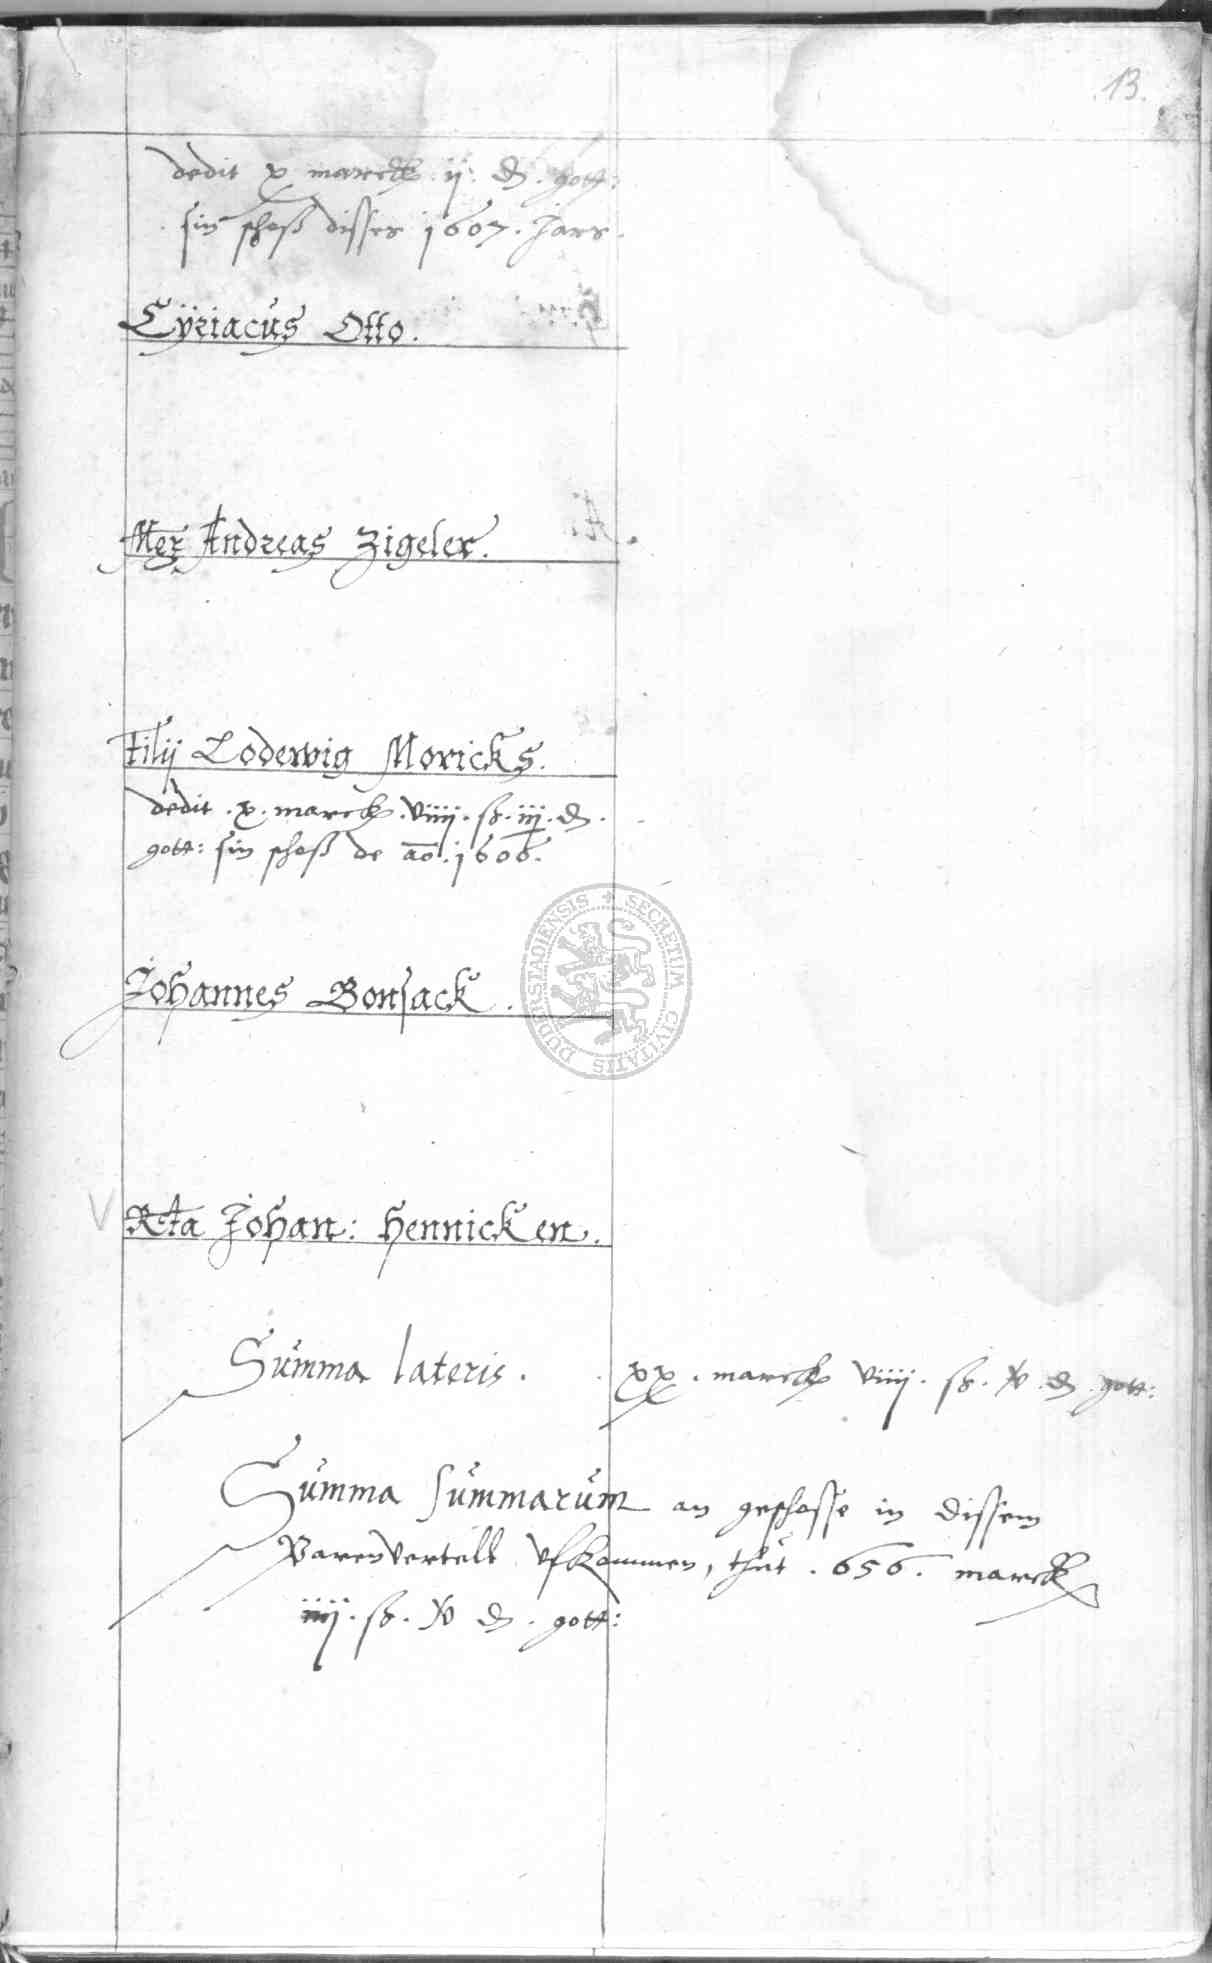 13.
dedit x marck ij ₰ gott:
sin schoß disses 1607. Jars.
Cÿriacus Otto.
Mgr Andreas Zigeler.
Filij Lodewig Moricks.
dedit . x . marck . viiij . ß . iij . ₰ .
gott: sin schoß de ao . 1606.
Johannes Bonsack.
V Rcta Johan: Hennicken.
Summa lateris . xx . marck viiij . ß . v . ₰ . gott:
Summa summarum an geschosse in dissem
vfkommen, thut . 656 . marck
iiij . ß . v ₰ . gott:
SECRETUM CIVITATIS DUDERSTADIENSIS